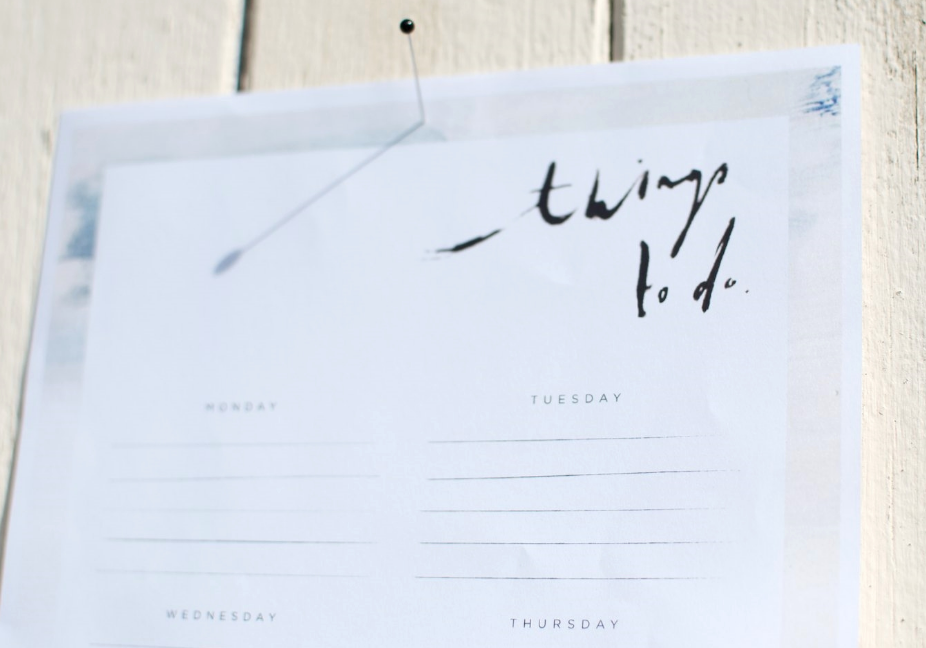 things
to do.
MONDAY
TUESDAY
WEDNESDAY
THURSDAY